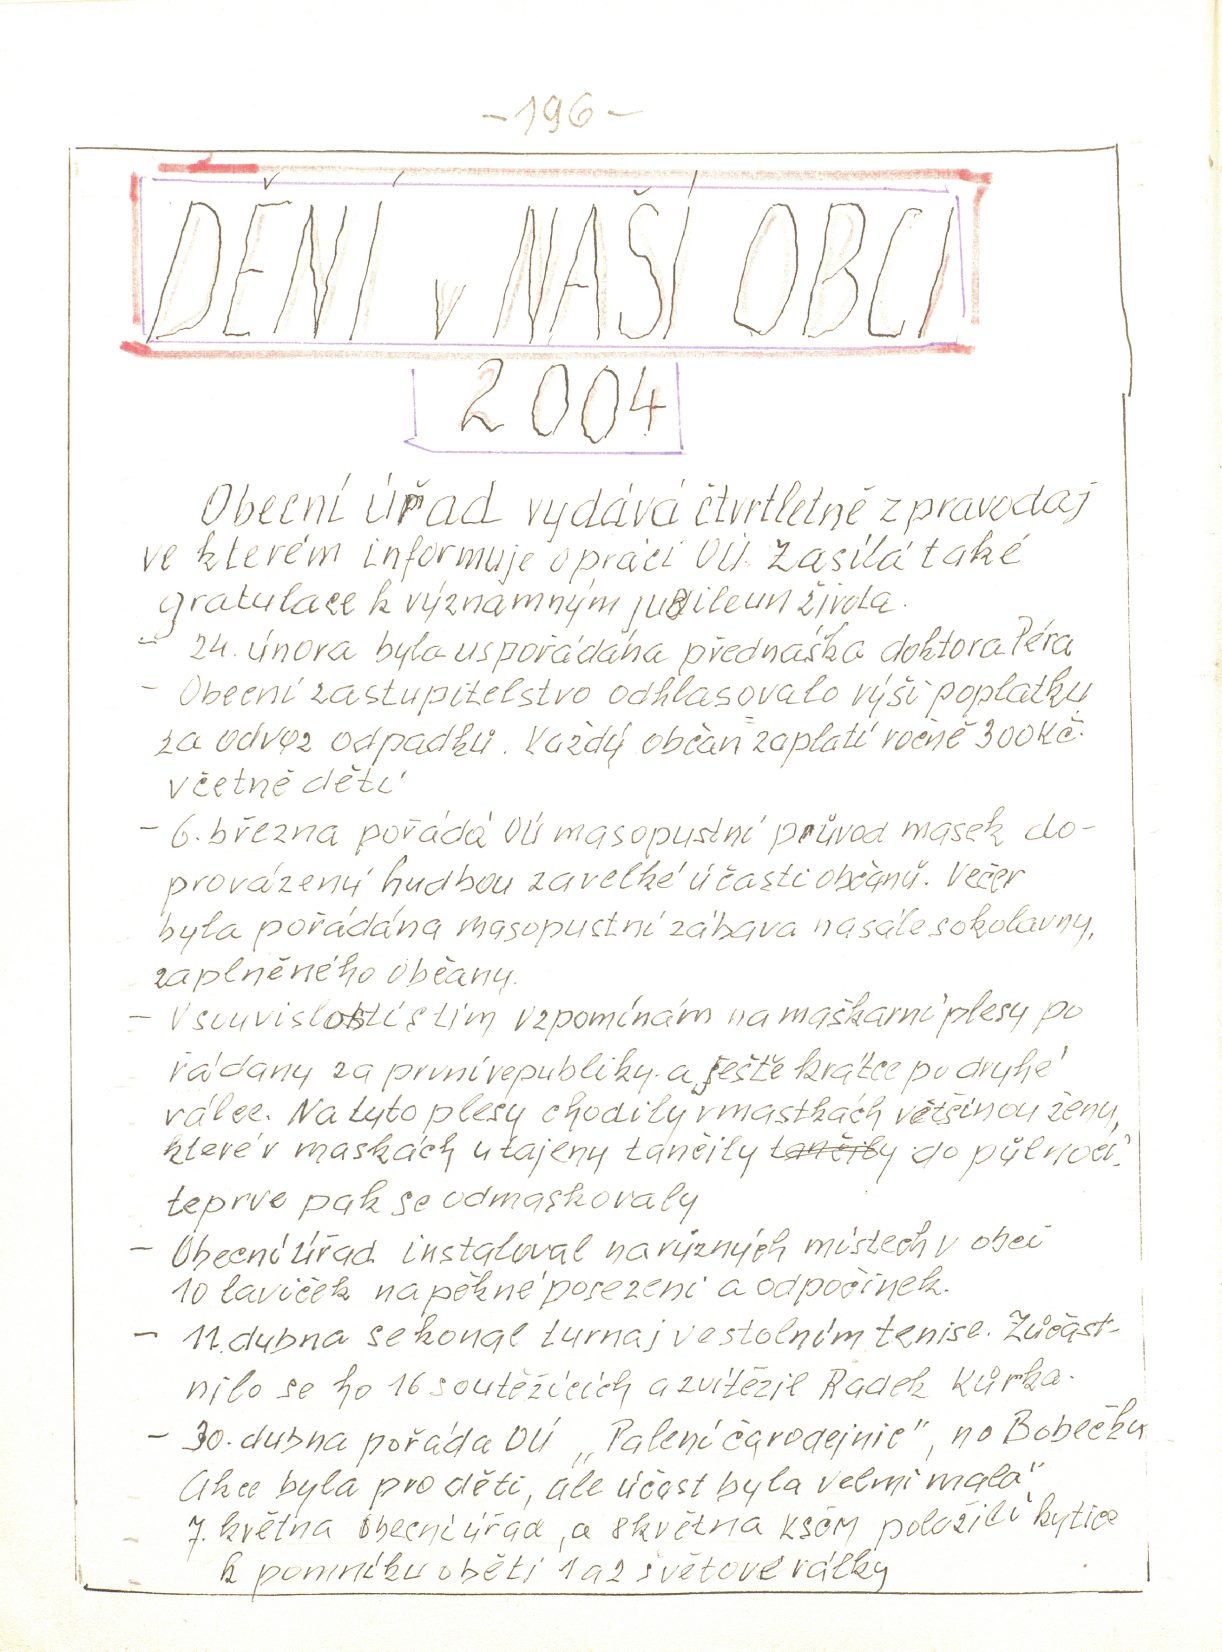 -196-
DĚNÍ v NAŠÍ OBCI
2004
Obecní úřad vydává čtvrtletně zpravodaj
ve kterém informuje o práci OÚ. Zasílá také
gratulace k významným jubileun života.
- 24. února byla uspořádána přednáška doktora Péra
- Obecní zastupitelstvo odhlasovalo výši poplatku
za odvoz odpadků. Každý občan zaplatí ročně 300 Kč
včetně dětí
- 6. března pořádá OÚ masopustní průvod masek do-
provázený hudbou za velké účasti občanů. Večer
byla pořádána masopustní zábava na sále sokolavny,
zaplněného občany.
- V souvislosti s tím vzpomínám na maškarní plesy po
řádany za první republiky a ještě krátce po druhé
válce. Na tyto plesy chodily v maskách většinou ženy,
které v maskách utajeny tančily tančily do půlnoci.
teprve pak se odmaskovaly
- Obecní úřad instaloval na různých místech v obci
10 laviček na pěkné posezení a odpočinek.
- 11. dubna se konal turnaj ve stolním tenise. Zúčast-
nilo se ho 16 soutěžících a zvítězil Radek Kůrka.
- 30. dubna pořáda OÚ „Palení čarodejnic", na Bobečku
Akce byla pro děti, ale účast byla velmi malá
7. května obecní úřad, a 8 května KSČM položili kytice
k pomníku oběti 1 a 2 světové války